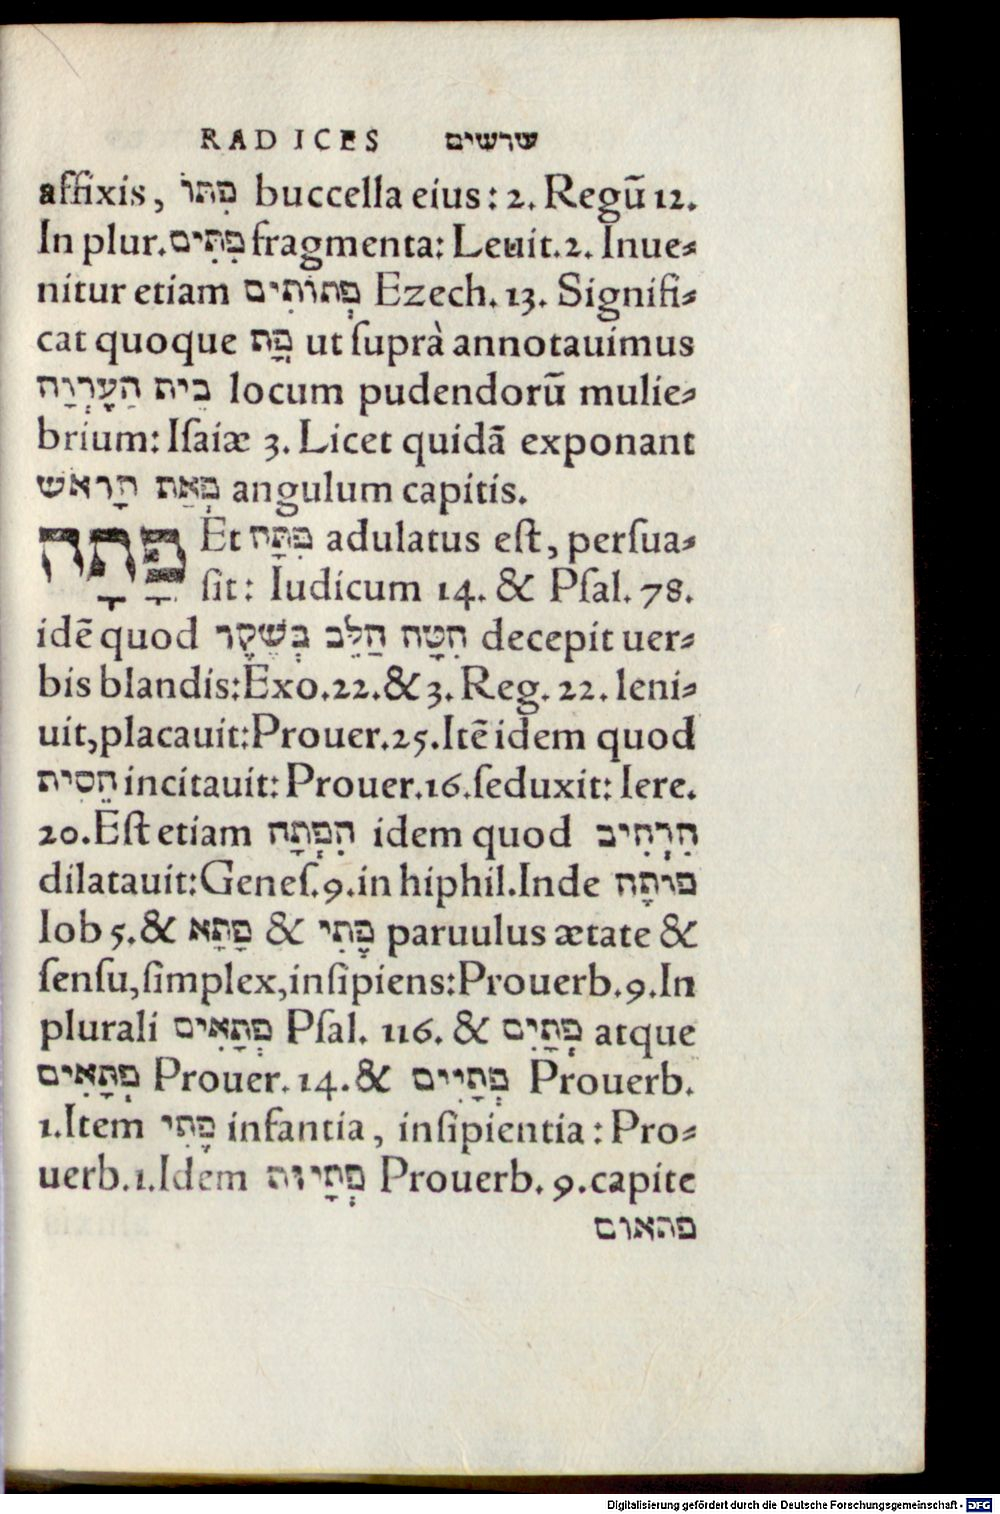 RADICES שרשים
affixis, פִּתּוֹ buccella eius: 2. Regũ 12.
In plur. פִּתִּים fragmenta: Leuit. 2. Inue-
nitur etiam פְּתוֹתִים Ezech. 13. Signifi-
cat quoque פֹּת ut ſuprà annotauimus
בֵּית הַעֶרְוָה locum pudendorũ mulie-
brium: Iſaiæ 3. Licet quidã exponant
פְּאַת הָרֹאשׁ angulum capitis.
פָּתָה Et פִּתָּה adulatus eſt, perſua-
ſit: Iudicum 14. & Pſal. 78.
idẽ quod הִטָּה הַלֵּב בְּשֶׁקֶר decepit uer-
bis blandis: Exo. 22. & 3. Reg. 22. leni-
uit, placauit: Prouer. 25. Itẽ idem quod
הֵסִית incitauit: Prouer. 16. ſeduxit: Iere.
20. Eſt etiam הִפְתָּה idem quod הִרְחִיב
dilatauit: Geneſ. 9. in hiphil. Inde פּוֹתֶה
Iob 5. & פָּתָא & פֶּתִי paruulus ætate &
ſenſu, ſimplex, inſipiens: Prouerb. 9. In
plurali פְּתָאִים Pſal. 116. & פְּתָיִם atque
פְּתָאִים Prouer. 14. & פְּתָיִים Prouerb.
1. Item פֶּתִי infantia, inſipientia: Pro-
uerb. 1. Idem פְּתָיוּת Prouerb. 9. capite
פתאום
Digitalisierung gefördert durch die Deutsche Forschungsgemeinschaft - DFG